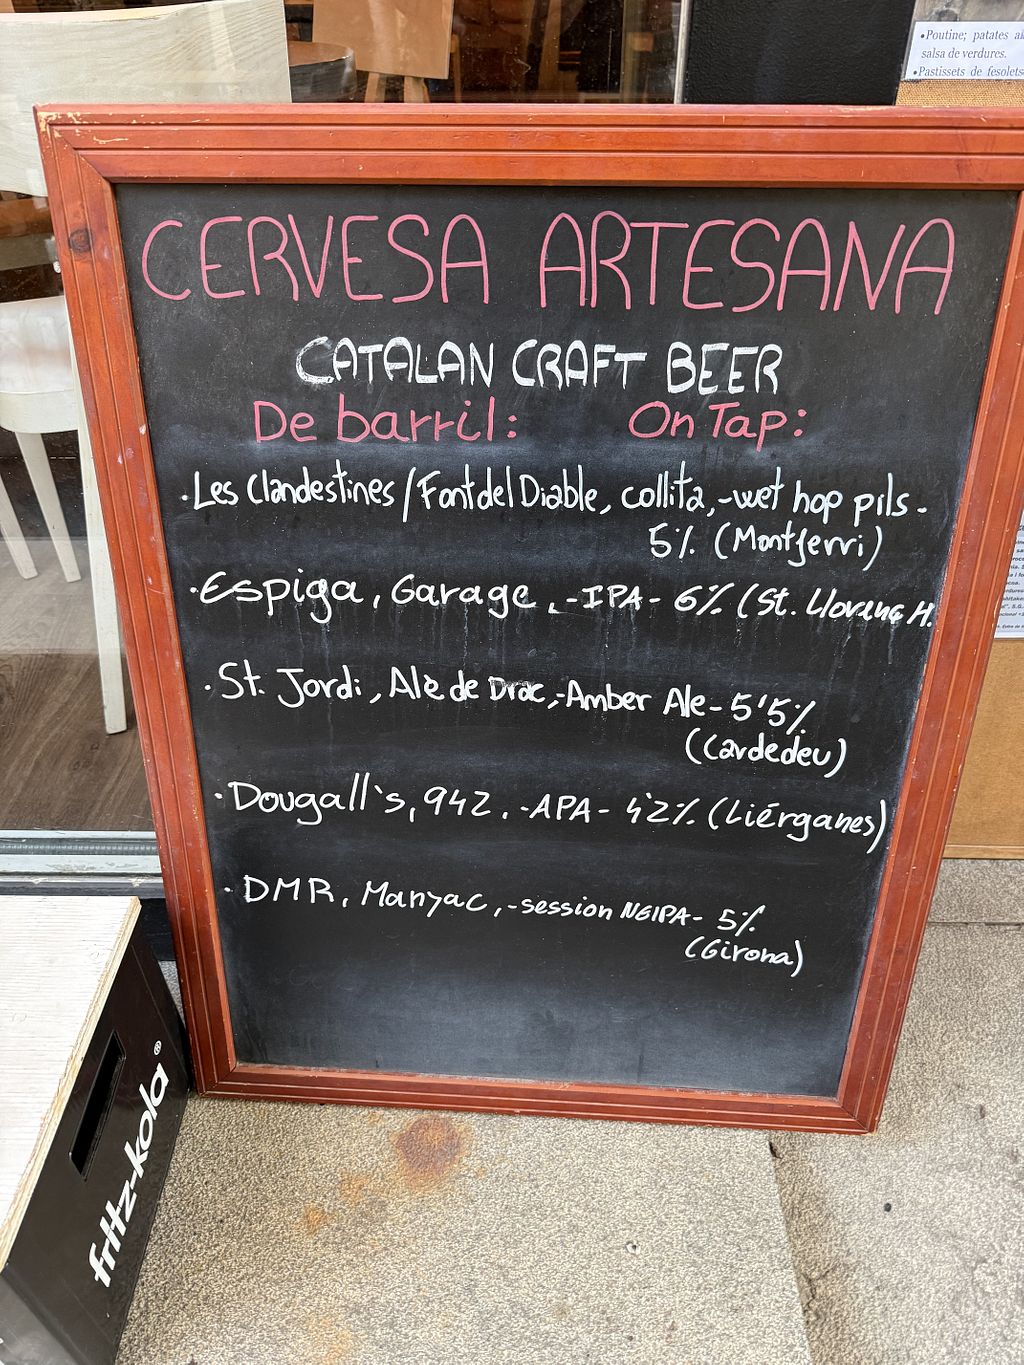 •Poutine; patates
salsa de verdures.
•Pastissets de fesolets-
CERVESA ARTESANA
CATALAN CRAFT BEER
De barril: On Tap:
·Les Clandestines / Font del Diable, collita,-wet hop pils-
5% (Montferri)
·Espiga, Garage, -IPA- 6% (St. Llorenç H.
·St. Jordi, Alè de Drac,-Amber Ale- 5'5%
(Cardedeu)
·Dougall's, 942, -APA- 4'2% (Liérganes)
·DMR, Manyac,-session NEIPA- 5%
(Girona)
fritz-kola®